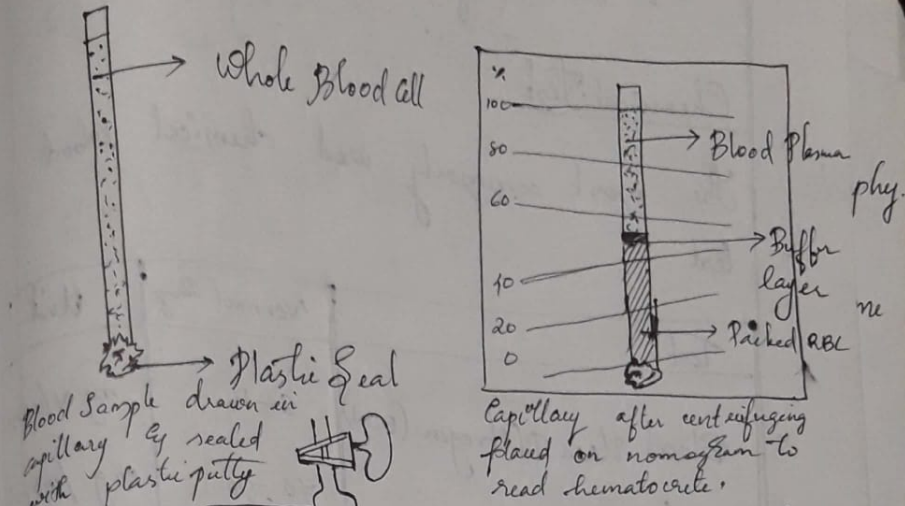 Whole Blood Cell
Plastic Seal
Blood Sample drawn in
capillary & sealed
with plastic putty
%
100
80
60
40
20
0
Blood Plasma
Buffer
layer
Packed RBC
Capillary after centrifuging
placed on nomogram to
read hematocrete.
phy.
ne